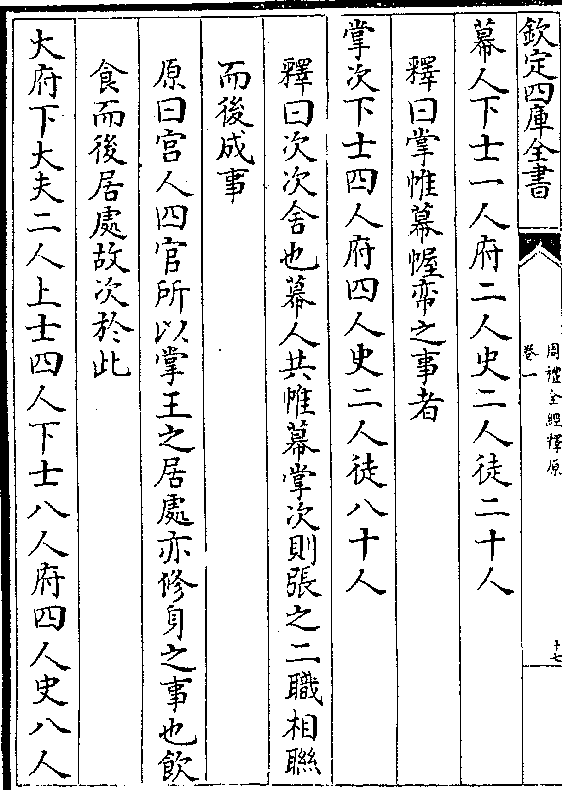 欽定四庫全書
周禮全經釋原
卷一
十七
幕人下士一人府二人史二人徒二十人
釋曰掌惟幕幄帟之事者
掌次下士四人府四人史二人徒八十人
釋曰次次舍也幕人共惟幕掌次則張之二職相聯
而後成事
原曰宮人四官所以掌王之居處亦修身之事也飲
食而後居處故次於此
大府下大夫二人上士四人下士八人府四人史八人